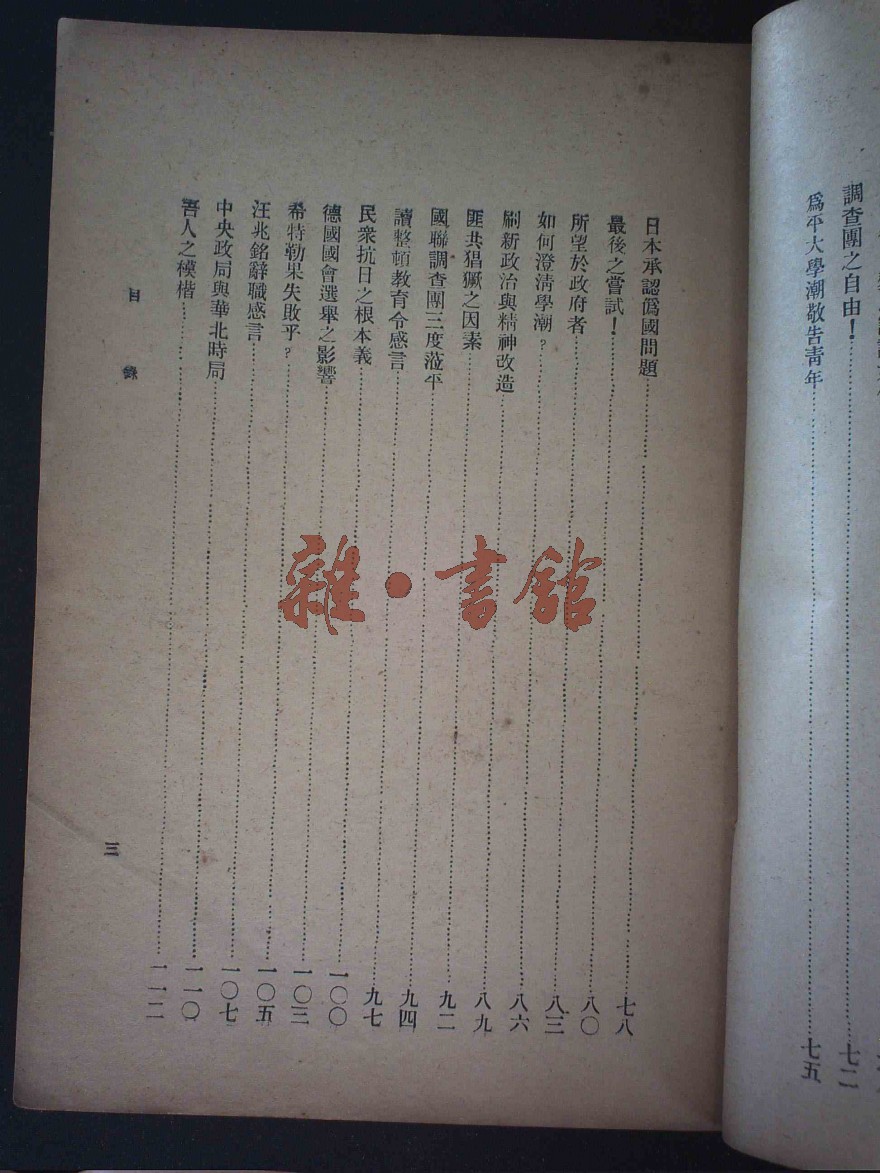 調查團之自由！……七二
爲平大學潮敬告青年……七五
日本承認僞國問題……七八
最後之嘗試！……八〇
所望於政府者……八三
如何澄清學潮？……八六
刷新政治與精神改造……八九
匪共猖獗之因素……九二
國聯調查團三度蒞平……九四
讀整頓教育令感言……九七
民衆抗日之根本義……一〇〇
德國國會選舉之影響……一〇三
希特勒果失敗乎？……一〇五
汪兆銘辭職感言……一〇七
中央政局與華北時局……一一〇
吾人之模楷……一一二
目錄
三
雜·書館